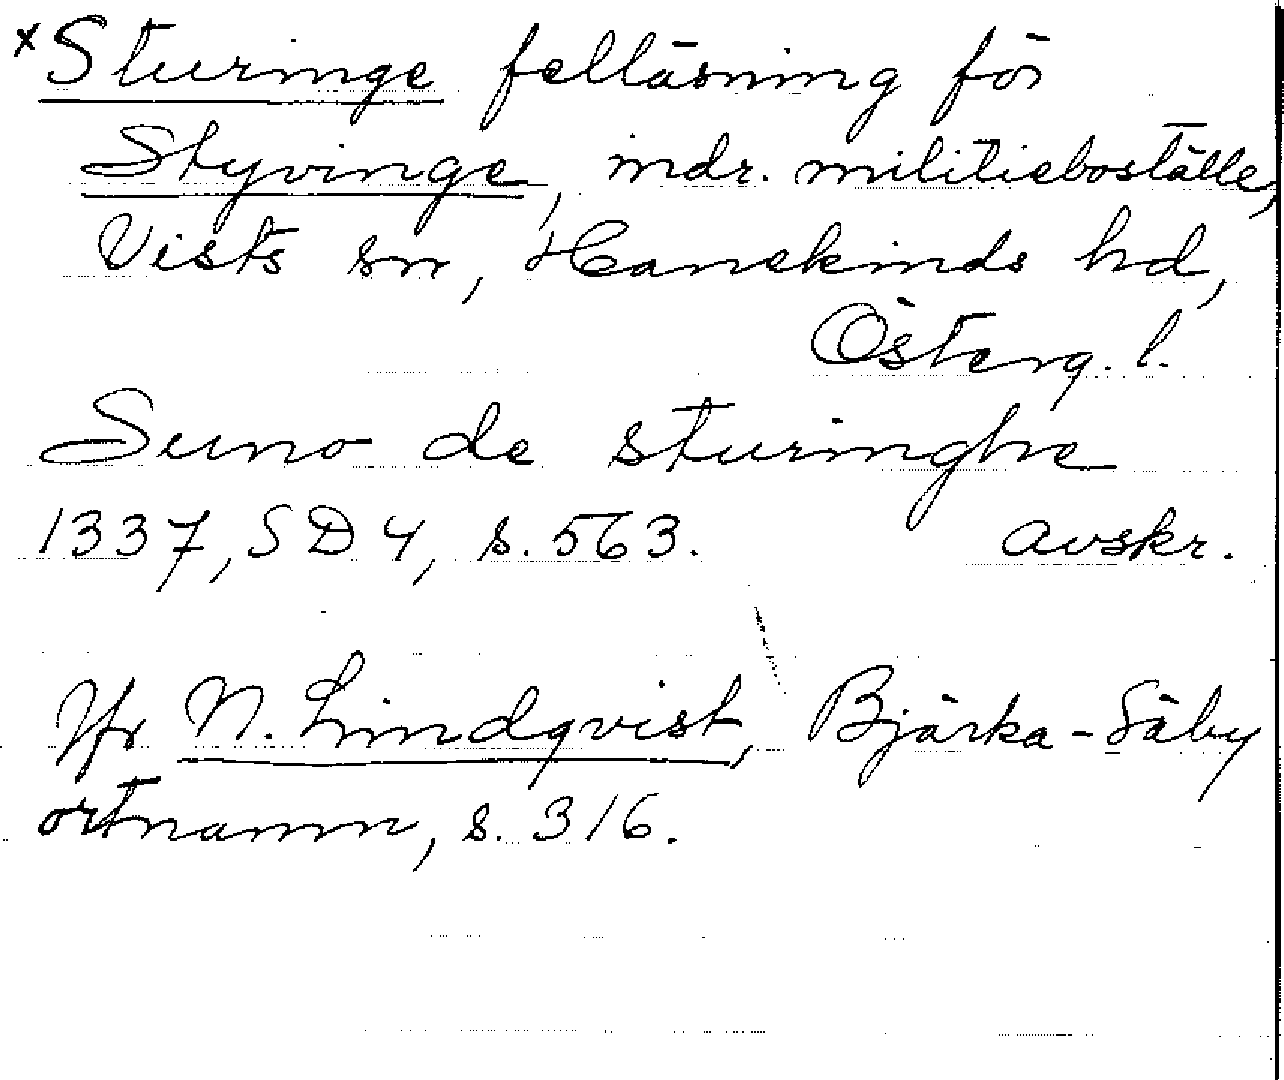 ×Sturinge felläsning för
Styvinge, indr. militieboställe,
Vists sn, Hanekinds hd,
Österg. l.
Suno de sturinghe
1337, SD 4, s. 563. avskr.
Jfr N. Lindqvist, Bjärka-Säby
ortnamn, s. 316.